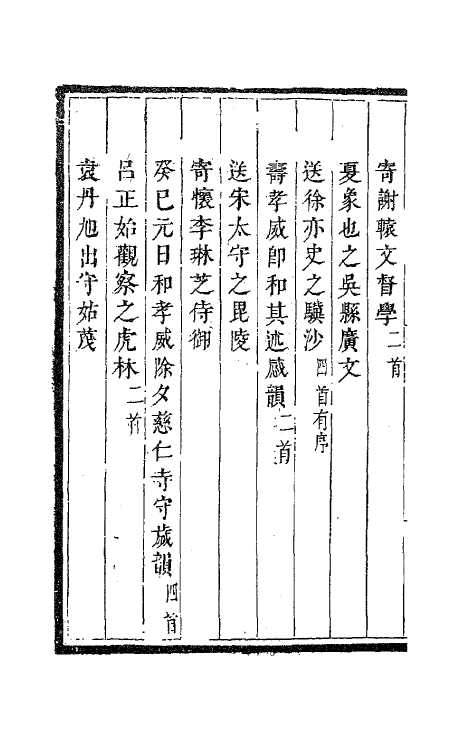 寄謝轅文督學二首
夏象也之吳縣廣文
送徐亦史之驥沙四首有序
壽孝威卽和其述感韻二首
送宋太守之毘陵
寄懷李琳芝侍御
癸巳元日和孝威除夕慈仁寺守歲韻四首
呂正始觀察之虎林二首
袁丹旭出守姑蔑